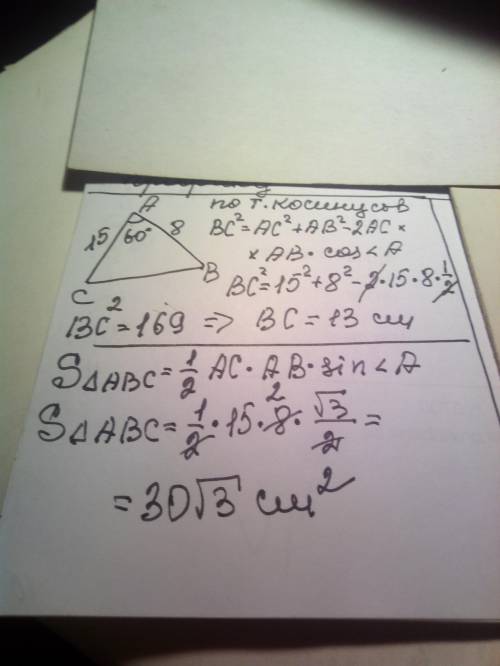 A
по т. косинусов
15 60° 8
BC² = AC² + AB² - 2AC ×
× AB · cos < A
C B
BC² = 15² + 8² - 2 · 15 · 8 · 1/2
BC² = 169 => BC = 13 см
S△ABC = 1/2 AC · AB · sin < A
2
S△ABC = 1/2 · 15 · 8 · √3/2 =
= 30√3 см²